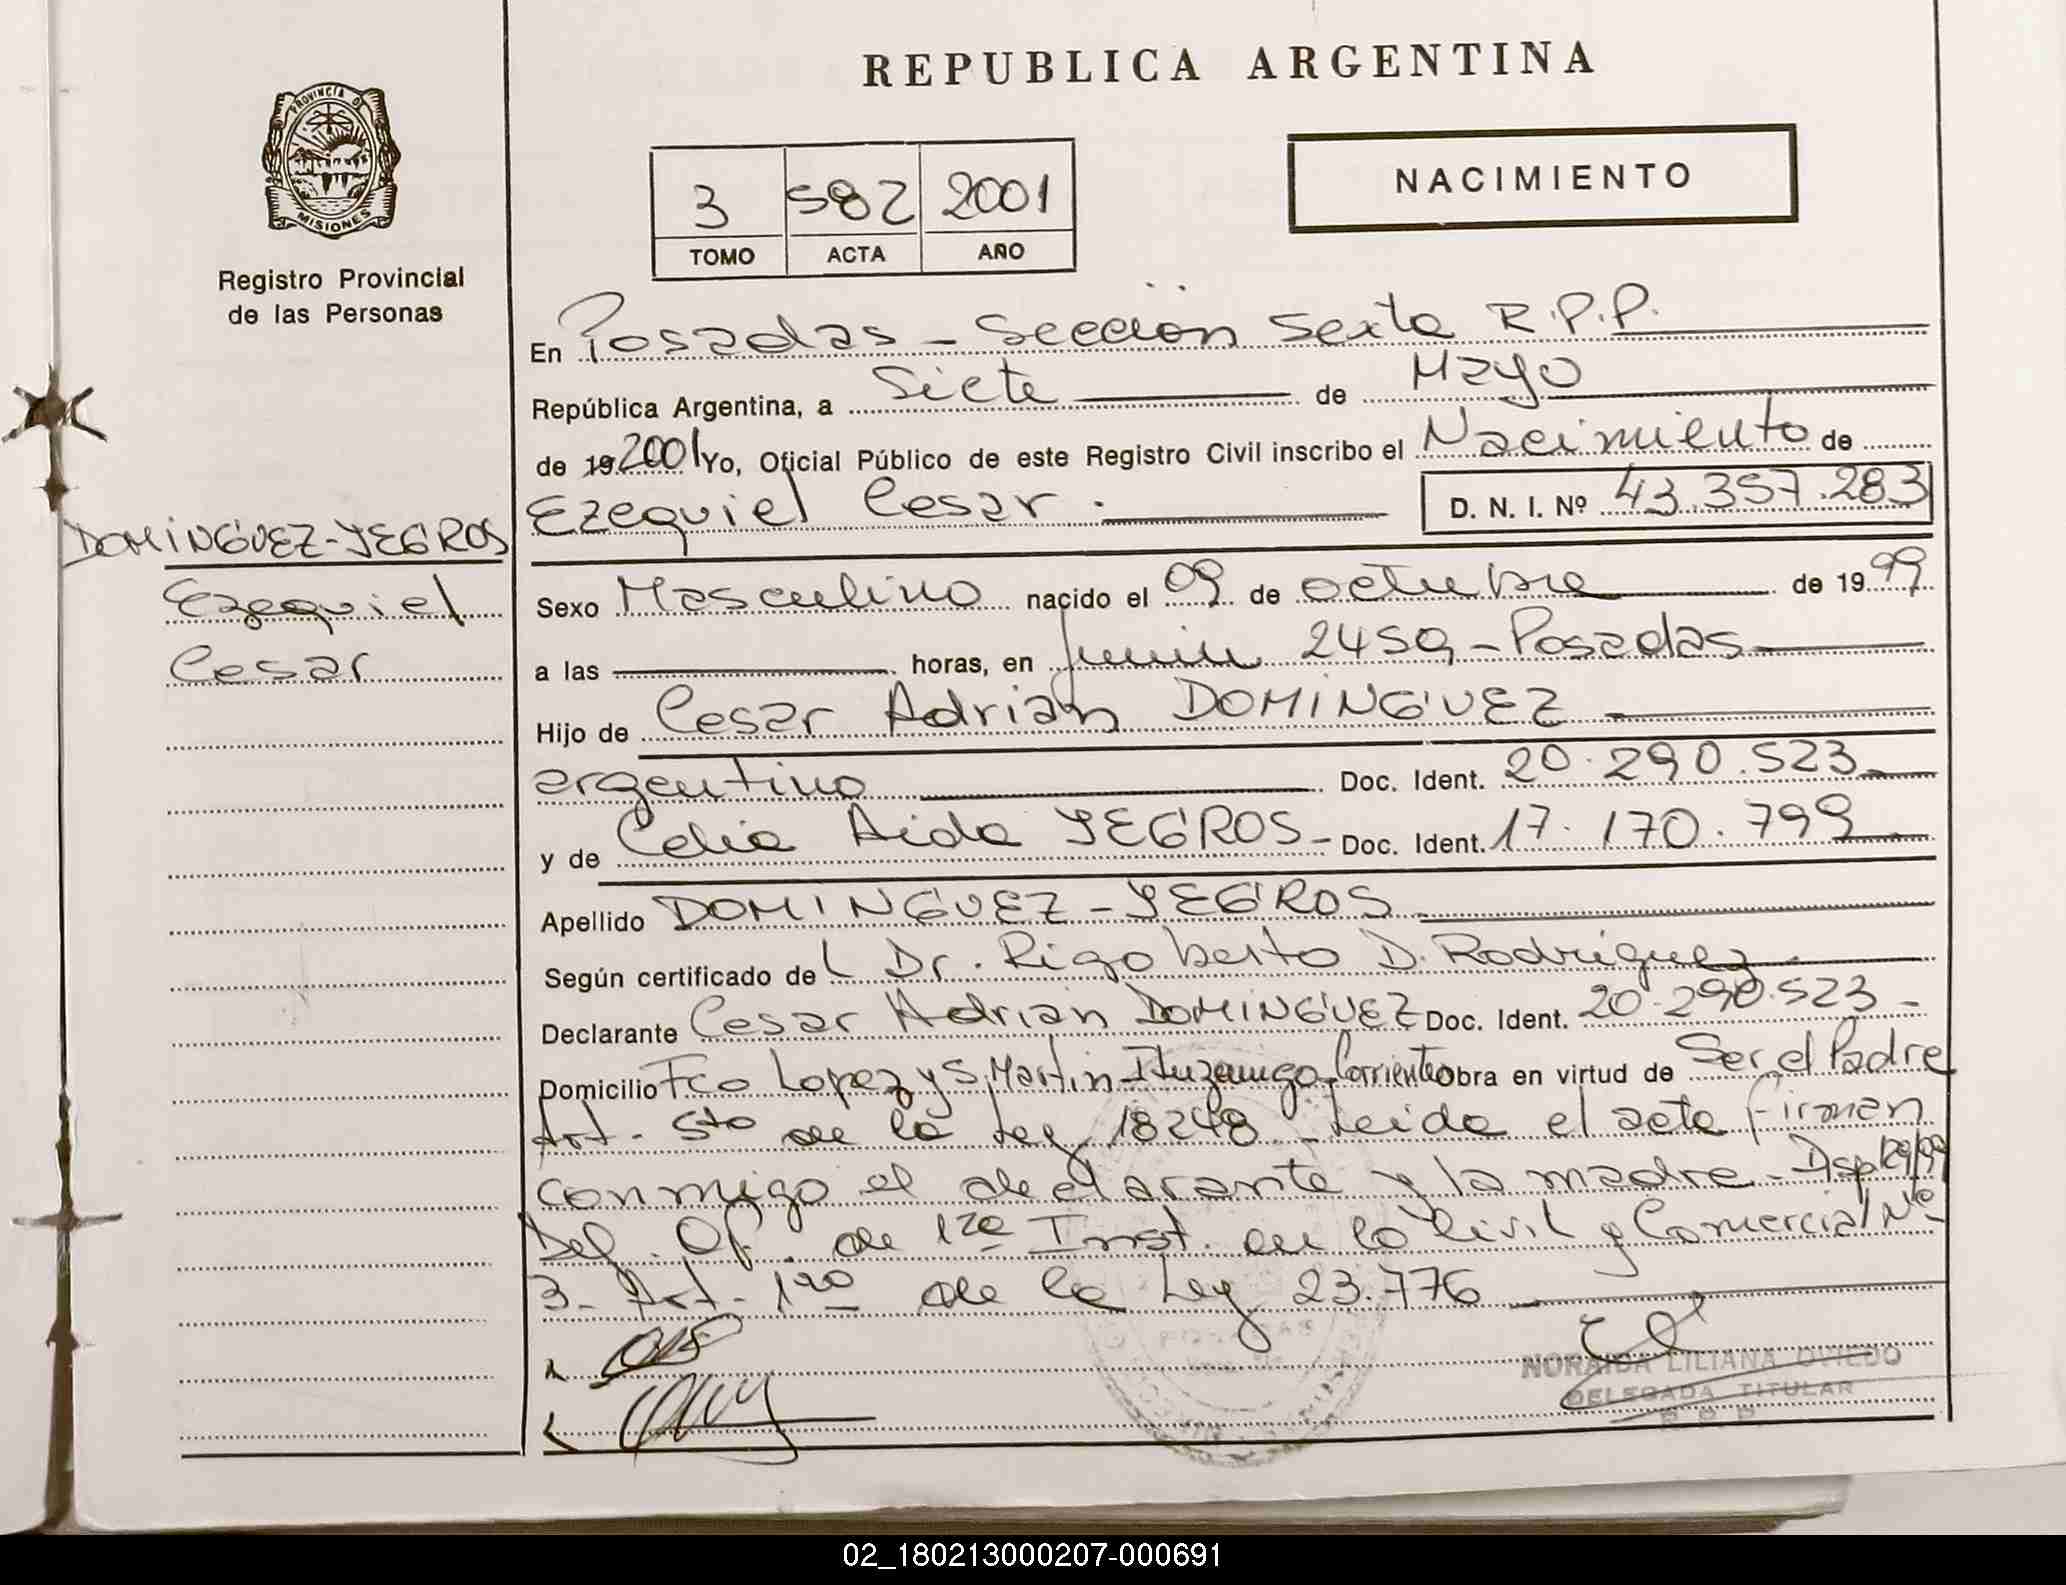 REPUBLICA ARGENTINA
PROVINCIA DE
MISIONES
Registro Provincial
de las Personas
3 582 2001
TOMO ACTA AÑO
NACIMIENTO
En Posadas - Sección Sexta R.P.P.
República Argentina, a Siete de Mayo
de 19 2001 Yo, Oficial Público de este Registro Civil inscribo el Nacimiento de
Ezequiel Cesar . D. N. I. Nº 43.357.283
DOMINGUEZ-YEGROS
Ezequiel
Cesar
Sexo Masculino nacido el 09 de octubre de 19 99
a las horas, en Junin 2459 - Posadas
Hijo de Cesar Adrian DOMINGUEZ
argentino Doc. Ident. 20.290.523
y de Celia Aida YEGROS - Doc. Ident. 17.170.799
Apellido DOMINGUEZ - YEGROS
Según certificado de l Dr. Rigoberto D. Rodriguez
Declarante Cesar Adrian DOMINGUEZ Doc. Ident. 20.290.523 -
Domicilio Fco Lopez y S. Martin - Ituzaingo - Corrientes obra en virtud de Ser el Padre
Art. 5to de la Ley 18248 - Leida el acta firman
conmigo el declarante y la madre - Disp 129/99
Def. Of. de 1ra Inst. en lo Civil y Comercial Nº
3 - Art. 1ro de la Ley 23.776
POSADAS
NORAIDA LILIANA OVIEDO
DELEGADA TITULAR
R P P
02_180213000207-000691